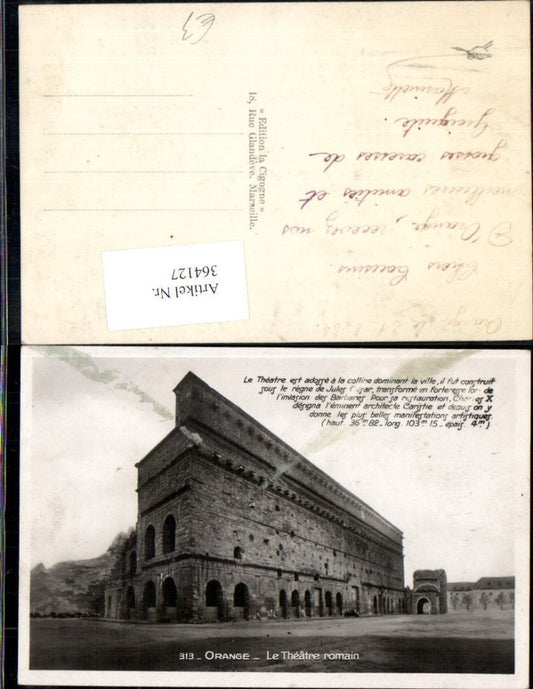 €3
« Edition la Cigogne »
18, Rue Glandève. Marseille.
Artikel Nr.
364127
Chers Cousins
d'Orange, recevez nos
meilleures amitiés et
grosses caresses de
Le Théatre est adossé à la colline dominant la ville, il fut construit
sous le règne de Jules César, transformé en forteresse lors de
l'invasion des Barbares. Pour sa restauration, Charles X
désigna l'éminent architecte Caristie et depuis on y
donne les plus belles manifestations artistiques.
(haut. 36m 82_ long. 103m 15_ épais. 4m)
313_ ORANGE_ Le Théâtre romain